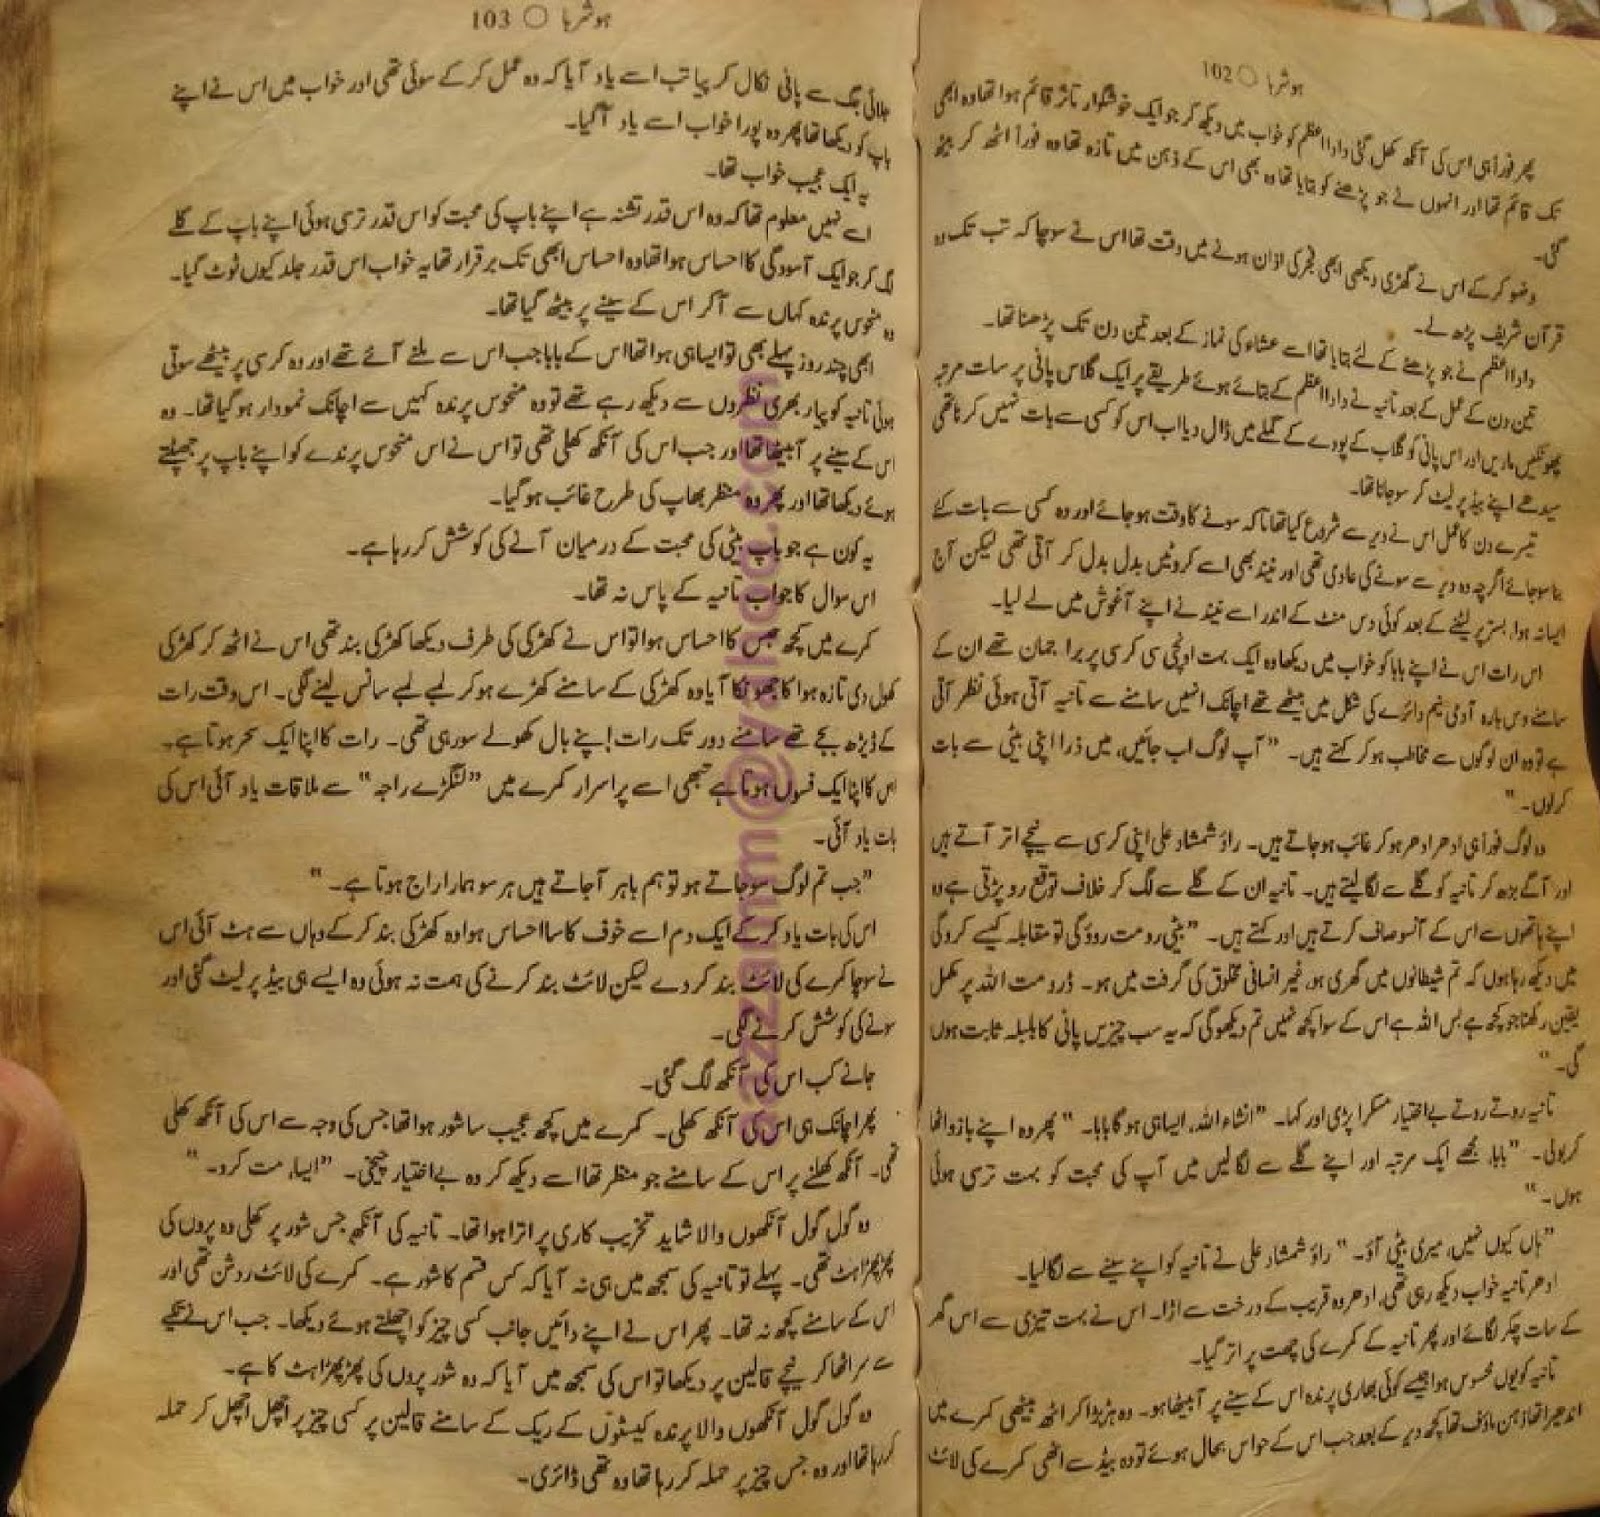 ہوشربا ○ 102
پھر فوراً ہی اس کی آنکھ کھل گئی دادا اعظم کو خواب میں دیکھ کر جو ایک خوشگوار تاثر قائم ہوا تھا وہ ابھی
تک قائم تھا اور انہوں نے جو پڑھنے کو بتایا تھا وہ بھی اس کے ذہن میں تازہ تھا وہ فوراً اٹھ کر بیٹھ
گئی۔
وضو کر کے اس نے گھڑی دیکھی ابھی فجر کی اذان ہونے میں وقت تھا اس نے سوچا کہ تب تک وہ
قرآن شریف پڑھ لے۔
دادا اعظم نے جو پڑھنے کے لئے بتایا تھا اسے عشاء کی نماز کے بعد تین دن تک پڑھنا تھا۔
تین دن کے عمل کے بعد تانیہ نے دادا اعظم کے بتائے ہوئے طریقے پر ایک گلاس پانی پر سات مرتبہ
پھونکیں ماریں اور اس پانی کو گلاب کے پودے کے گملے میں ڈال دیا اب اس کو کسی سے بات نہیں کرنا تھی
سیدھے اپنے بیڈ پر لیٹ کر سو جانا تھا۔
تیسرے دن کا عمل اس نے دیر سے شروع کیا تھا تاکہ سونے کا وقت ہو جائے اور وہ کسی سے بات کئے
بنا سو جائے اگرچہ وہ دیر سے سونے کی عادی تھی اور نیند بھی اسے کروٹیں بدل بدل کر آتی تھی لیکن آج
ایسا نہ ہوا، بستر پر لیٹنے کے بعد کوئی دس منٹ کے اندر اسے نیند نے اپنے آغوش میں لے لیا۔
اس رات اس نے اپنے بابا کو خواب میں دیکھا وہ ایک بہت اونچی سی کرسی پر براجمان تھے ان کے
سامنے دس بارہ آدمی نیم دائرے کی شکل میں بیٹھے تھے اچانک انہیں سامنے سے تانیہ آتی ہوئی نظر آتی
ہے تو وہ ان لوگوں سے مخاطب ہو کر کہتے ہیں۔ ”آپ لوگ اب جائیں، میں ذرا اپنی بیٹی سے بات
کر لوں۔“
وہ لوگ فوراً ہی ادھر ادھر ہو کر غائب ہو جاتے ہیں۔ راؤ شمشاد علی اپنی کرسی سے نیچے اتر آتے ہیں
اور آگے بڑھ کر تانیہ کو گلے سے لگا لیتے ہیں۔ تانیہ ان کے گلے سے لگ کر خلاف توقع رو پڑتی ہے وہ
اپنے ہاتھوں سے اس کے آنسو صاف کرتے ہیں اور کہتے ہیں۔ ”بیٹی رو مت روؤ گی تو مقابلہ کیسے کرو گی
میں دیکھ رہا ہوں کہ تم شیطانوں میں گھری ہو، غیر انسانی مخلوق کی گرفت میں ہو۔ ڈرو مت اللہ پر مکمل
یقین رکھنا جو کچھ ہے بس اللہ ہے اس کے سوا کچھ نہیں تم دیکھو گی کہ یہ سب چیزیں پانی کا بلبلہ ثابت ہوں
گی۔“
تانیہ روتے روتے بے اختیار مسکرا پڑی اور کہا۔ ”انشاء اللہ، ایسا ہی ہو گا بابا۔“ پھر وہ اپنے بازو اٹھا
کر بولی۔ ”بابا، مجھے ایک مرتبہ اور اپنے گلے سے لگا لیں میں آپ کی محبت کو بہت ترسی ہوئی
ہوں۔“
”ہاں کیوں نہیں، میری بیٹی آؤ۔“ راؤ شمشاد علی نے تانیہ کو اپنے سینے سے لگا لیا۔
ادھر تانیہ خواب دیکھ رہی تھی، ادھر وہ قریب کے درخت سے اڑا۔ اس نے بہت تیزی سے اس گھر
کے سات چکر لگائے اور پھر تانیہ کے کمرے کی چھت پر اتر گیا۔
تانیہ کو یوں محسوس ہوا جیسے کوئی بھاری پرندہ اس کے سینے پر آ بیٹھا ہو۔ وہ ہڑبڑا کر اٹھ بیٹھی کمرے میں
اندھیرا تھا ذہن ماؤف تھا کچھ دیر کے بعد جب اس کے حواس بحال ہوئے تو وہ بیڈ سے اٹھی کمرے کی لائٹ
ہوشربا ○ 103
جلائی جگ سے پانی نکال کر پیا تب اسے یاد آیا کہ وہ عمل کر کے سوئی تھی اور خواب میں اس نے اپنے
باپ کو دیکھا تھا پھر وہ پورا خواب اسے یاد آ گیا۔
یہ ایک عجیب خواب تھا۔
اسے نہیں معلوم تھا کہ وہ اس قدر تشنہ ہے اپنے باپ کی محبت کو اس قدر ترسی ہوئی اپنے باپ کے گلے
لگ کر جو ایک آسودگی کا احساس ہوا تھا وہ احساس ابھی تک برقرار تھا یہ خواب اس قدر جلد کیوں ٹوٹ گیا۔
وہ منحوس پرندہ کہاں سے آ کر اس کے سینے پر بیٹھ گیا تھا۔
ابھی چند روز پہلے بھی تو ایسا ہی ہوا تھا اس کے بابا جب اس سے ملنے آئے تھے اور وہ کرسی پر بیٹھے سوتی
ہوئی تانیہ کو پیار بھری نظروں سے دیکھ رہے تھے تو وہ منحوس پرندہ کہیں سے اچانک نمودار ہو گیا تھا۔ وہ
اس کے سینے پر آ بیٹھا تھا اور جب اس کی آنکھ کھلی تھی تو اس نے اس منحوس پرندے کو اپنے باپ پر جھپٹتے
ہوئے دیکھا تھا اور پھر وہ منظر بھاپ کی طرح غائب ہو گیا۔
یہ کون ہے جو باپ بیٹی کی محبت کے درمیان آنے کی کوشش کر رہا ہے۔
اس سوال کا جواب تانیہ کے پاس نہ تھا۔
کمرے میں کچھ حبس کا احساس ہوا تو اس نے کھڑکی کی طرف دیکھا کھڑکی بند تھی اس نے اٹھ کر کھڑکی
کھول دی تازہ ہوا کا جھونکا آیا وہ کھڑکی کے سامنے کھڑے ہو کر لمبے لمبے سانس لینے لگی۔ اس وقت رات
کے ڈیڑھ بجے تھے سامنے دور تک رات اپنے بال کھولے سو رہی تھی۔ رات کا اپنا ایک سحر ہوتا ہے۔
اس کا اپنا ایک فسوں ہوتا ہے تبھی اسے پراسرار کمرے میں ”لنگڑے راجہ“ سے ملاقات یاد آئی اس کی
بات یاد آئی۔
”جب تم لوگ سو جاتے ہو تو ہم باہر آ جاتے ہیں ہر سو ہمارا راج ہوتا ہے۔“
اس کی بات یاد کر کے ایک دم اسے خوف کا سا احساس ہوا وہ کھڑکی بند کر کے وہاں سے ہٹ آئی اس
نے سوچا کمرے کی لائٹ بند کر دے لیکن لائٹ بند کرنے کی ہمت نہ ہوئی وہ ایسے ہی بیڈ پر لیٹ گئی اور
سونے کی کوشش کرنے لگی۔
جانے کب اس کی آنکھ لگ گئی۔
پھر اچانک ہی اس کی آنکھ کھلی۔ کمرے میں کچھ عجیب سا شور ہوا تھا جس کی وجہ سے اس کی آنکھ کھلی
تھی۔ آنکھ کھلنے پر اس کے سامنے جو منظر تھا اسے دیکھ کر وہ بے اختیار چیخی۔ ”ایسا، مت کرو۔“
وہ گول گول آنکھوں والا شاید تخریب کاری پر اترا ہوا تھا۔ تانیہ کی آنکھ جس شور پر کھلی وہ پروں کی
پھڑپھڑاہٹ تھی۔ پہلے تو تانیہ کی سمجھ میں ہی نہ آیا کہ کس قسم کا شور ہے۔ کمرے کی لائٹ روشن تھی اور
اس کے سامنے کچھ نہ تھا۔ پھر اس نے اپنے دائیں جانب کسی چیز کو اچھلتے ہوئے دیکھا۔ جب اس نے تکیے
سے سر اٹھا کر نیچے قالین پر دیکھا تو اس کی سمجھ میں آیا کہ وہ شور پروں کی پھڑپھڑاہٹ کا ہے۔
وہ گول گول آنکھوں والا پرندہ کیسٹوں کے ریک کے سامنے قالین پر کسی چیز پر اچھل اچھل کر حملہ
کر رہا تھا اور وہ جس چیز پر حملہ کر رہا تھا وہ تھی ڈائری۔
aazzamm@yahoo.com